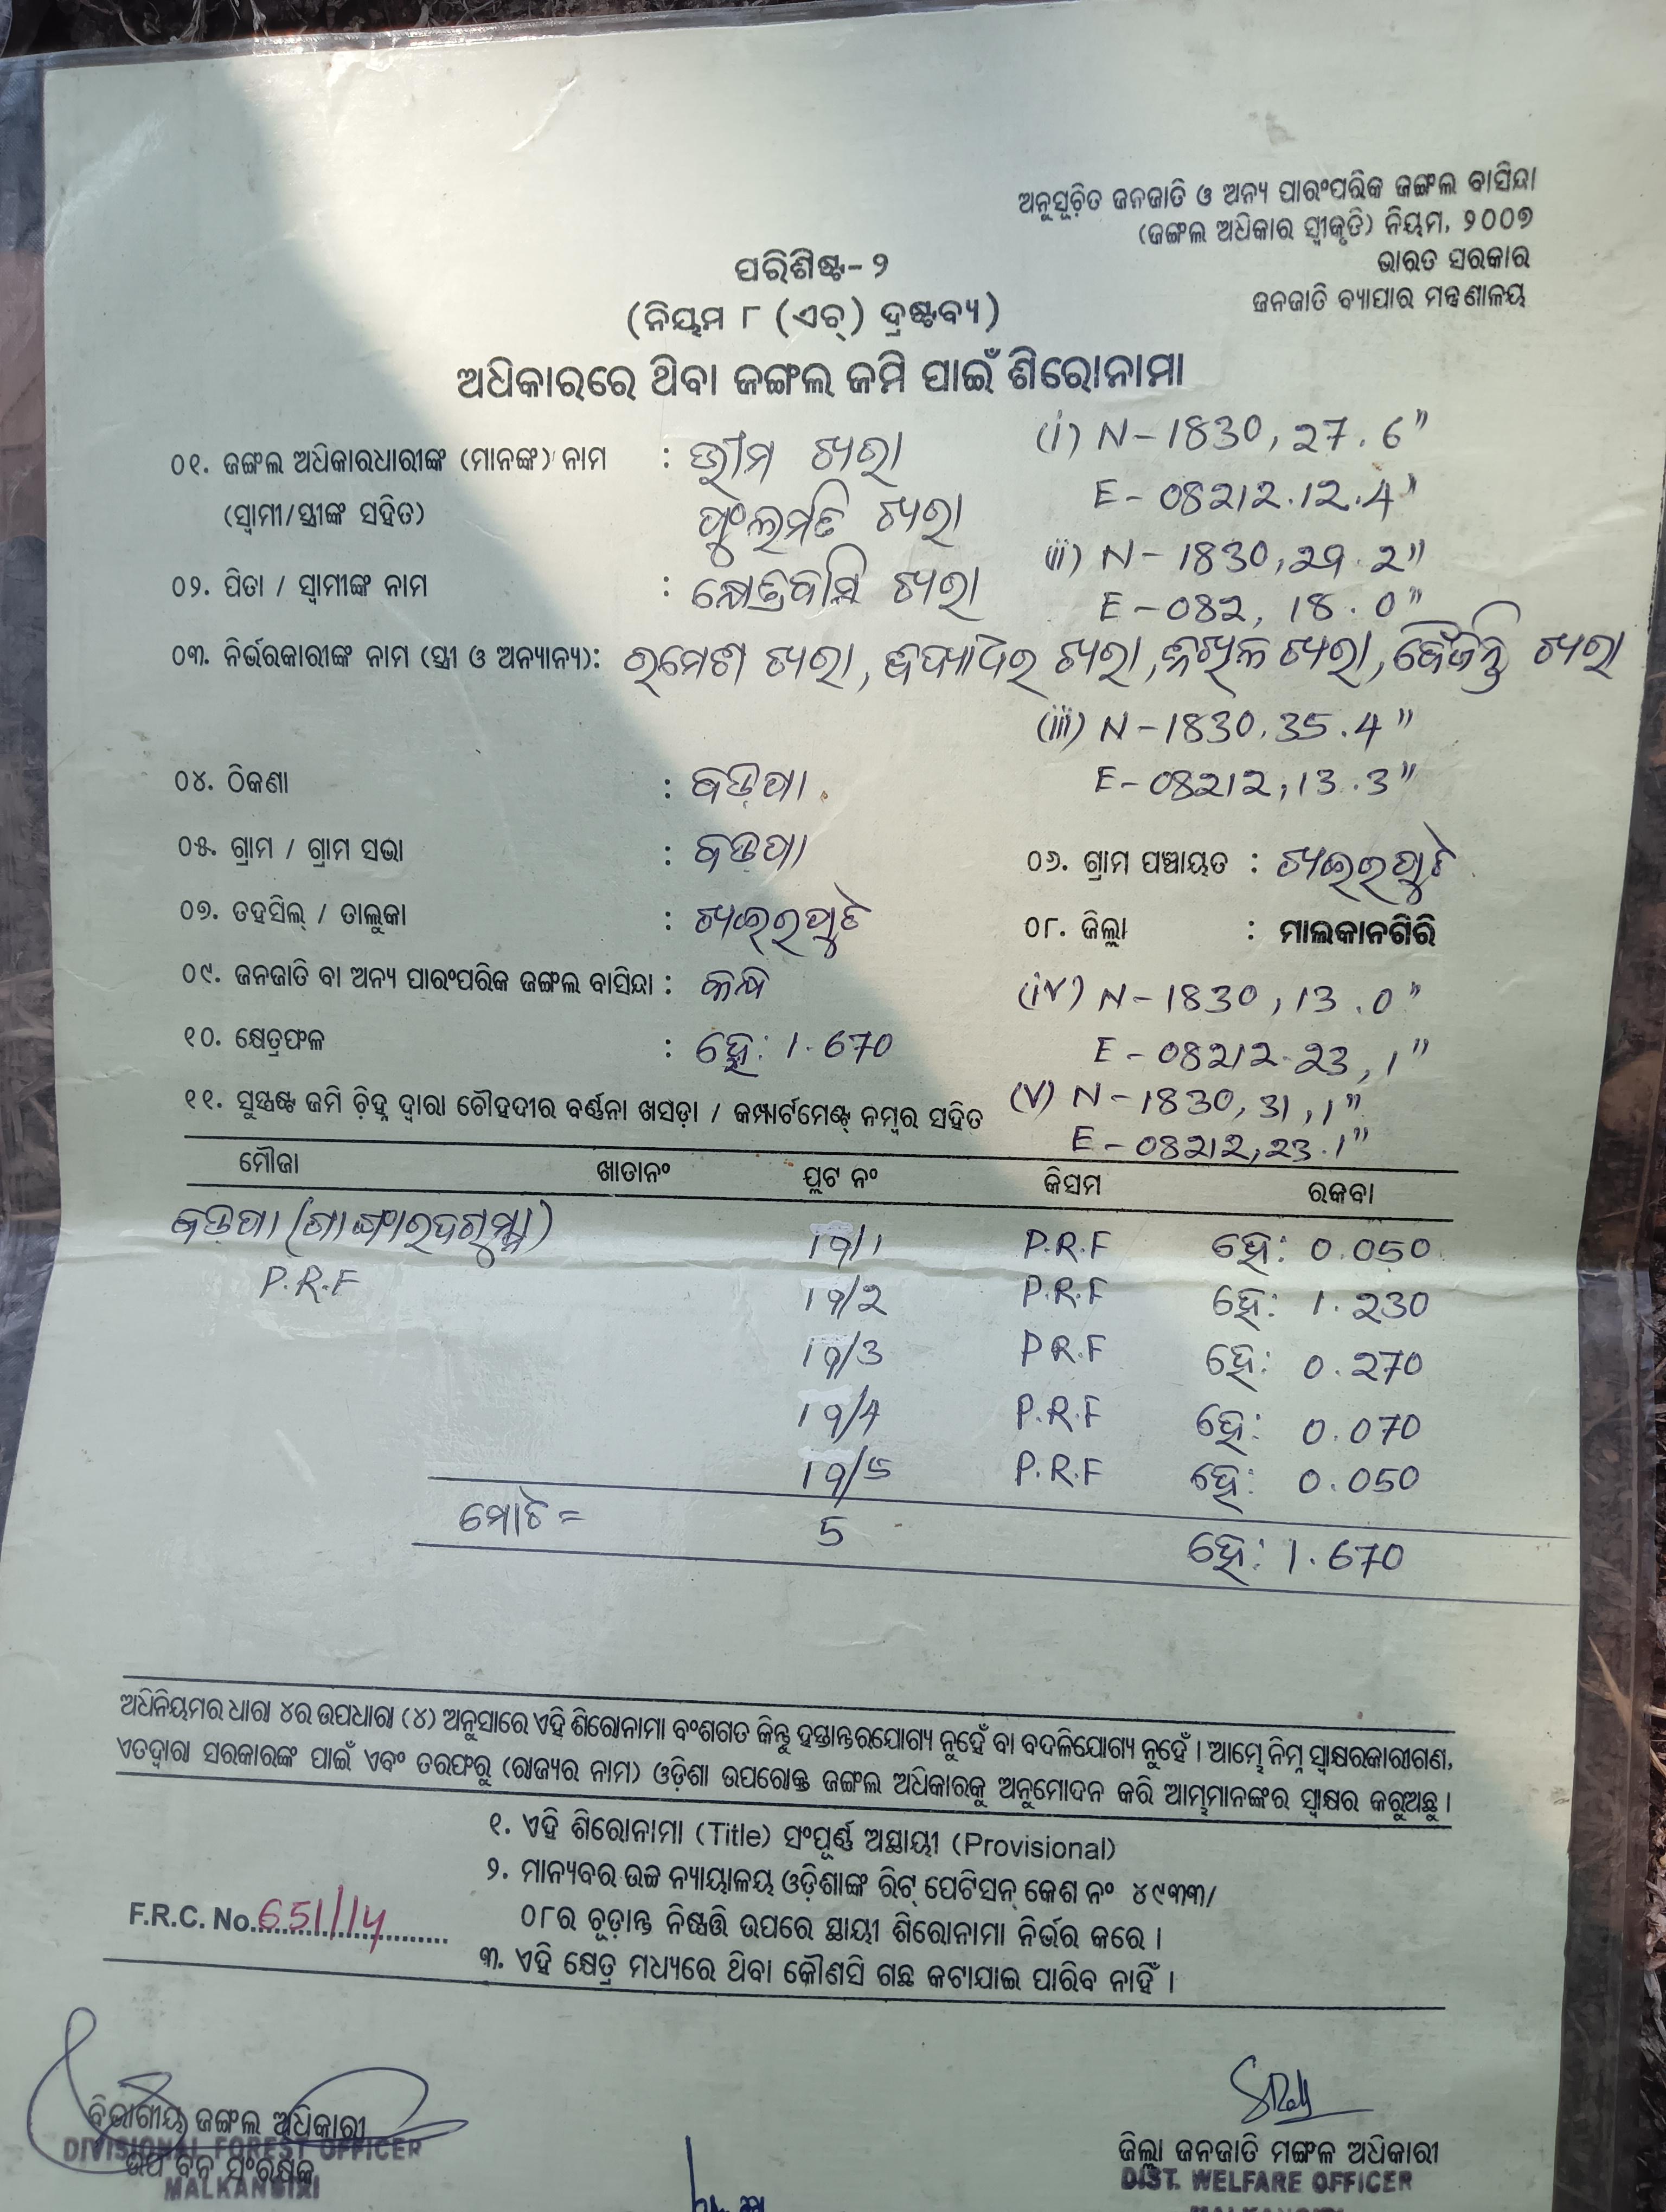 ଅନୁସୂଚିତ ଜନଜାତି ଓ ଅନ୍ୟ ପାରଂପରିକ ଜଙ୍ଗଲ ବାସିନ୍ଦା
(ଜଙ୍ଗଲ ଅଧିକାର ସ୍ୱୀକୃତି) ନିୟମ, ୨୦୦୭
ଭାରତ ସରକାର
ଜନଜାତି ବ୍ୟାପାର ମନ୍ତ୍ରଣାଳୟ
ପରିଶିଷ୍ଟ-୨
(ନିୟମ ୮ (ଏଚ୍) ଦ୍ରଷ୍ଟବ୍ୟ)
ଅଧିକାରରେ ଥିବା ଜଙ୍ଗଲ ଜମି ପାଇଁ ଶିରୋନାମା
୦୧. ଜଙ୍ଗଲ ଅଧିକାରଧାରୀଙ୍କ (ମାନଙ୍କ) ନାମ : ଭୀମ ଖରା (i) N-1830, 27.6"
(ସ୍ୱାମୀ/ସ୍ତ୍ରୀଙ୍କ ସହିତ) ଫୁଲମତି ଖରା E-08212.12.4"
(ii) N-1830,29.2"
୦୨. ପିତା / ସ୍ୱାମୀଙ୍କ ନାମ : ଖରା E-082, 18.0"
୦୩. ନିର୍ଭରକାରୀଙ୍କ ନାମ (ସ୍ତ୍ରୀ ଓ ଅନ୍ୟାନ୍ୟ): ରମେଶ ଖରା, ଖରା, ଖରା, ଖରା
(iii) N-1830.35.4"
୦୪. ଠିକଣା : ବଡପା E-08212,13.3"
୦୫. ଗ୍ରାମ / ଗ୍ରାମ ସଭା : ବଡପା ୦୬. ଗ୍ରାମ ପଞ୍ଚାୟତ : ଖଇରପୁଟ
୦୭. ତହସିଲ୍ / ତାଲୁକା : ଖଇରପୁଟ ୦୮. ଜିଲ୍ଲା : ମାଲକାନଗିରି
୦୯. ଜନଜାତି ବା ଅନ୍ୟ ପାରଂପରିକ ଜଙ୍ଗଲ ବାସିନ୍ଦା : କନ୍ଧ (iv) N-1830, 13.0"
୧୦. କ୍ଷେତ୍ରଫଳ : ହେ: 1.670 E-08212.23,1"
୧୧. ସୁସ୍ପଷ୍ଟ ଜମି ଚିହ୍ନ ଦ୍ୱାରା ଚୌହଦୀର ବର୍ଣ୍ଣନା ଖସଡ଼ା / କମ୍ପାର୍ଟମେଣ୍ଟ୍ ନମ୍ବର ସହିତ (V) N-1830,31,1"
E-08212,23.1"
ମୌଜା ଖାତାନଂ ପ୍ଲଟ ନଂ କିସମ ରକବା
ବଡପା 19/1 P.R.F ହେ: 0.050
P.R.F 19/2 P.R.F ହେ: 1.230
19/3 P.R.F ହେ: 0.270
19/4 P.R.F ହେ: 0.070
19/5 P.R.F ହେ: 0.050
ମୋଟ = 5 ହେ: 1.670
ଅଧିନିୟମର ଧାରା ୪ର ଉପଧାରା (୪) ଅନୁସାରେ ଏହି ଶିରୋନାମା ବଂଶଗତ କିନ୍ତୁ ହସ୍ତାନ୍ତରଯୋଗ୍ୟ ନୁହେଁ ବା ବଦଳିଯୋଗ୍ୟ ନୁହେଁ । ଆମ୍ଭେ ନିମ୍ନ ସ୍ୱାକ୍ଷରକାରୀଗଣ,
ଏତଦ୍ୱାରା ସରକାରଙ୍କ ପାଇଁ ଏବଂ ତରଫରୁ (ରାଜ୍ୟର ନାମ) ଓଡ଼ିଶା ଉପରୋକ୍ତ ଜଙ୍ଗଲ ଅଧିକାରକୁ ଅନୁମୋଦନ କରି ଆମ୍ଭମାନଙ୍କର ସ୍ୱାକ୍ଷର କରୁଅଛୁ ।
୧. ଏହି ଶିରୋନାମା (Title) ସଂପୂର୍ଣ୍ଣ ଅସ୍ଥାୟୀ (Provisional)
୨. ମାନ୍ୟବର ଉଚ୍ଚ ନ୍ୟାୟାଳୟ ଓଡ଼ିଶାଙ୍କ ରିଟ୍ ପେଟିସନ୍ କେଶ ନଂ ୪୯୩୩/
୦୮ର ଚୂଡ଼ାନ୍ତ ନିଷ୍ପତ୍ତି ଉପରେ ସ୍ଥାୟୀ ଶିରୋନାମା ନିର୍ଭର କରେ ।
F.R.C. No. 651/14
୩. ଏହି କ୍ଷେତ୍ର ମଧ୍ୟରେ ଥିବା କୌଣସି ଗଛ କଟାଯାଇ ପାରିବ ନାହିଁ ।
ବିଭାଗୀୟ ଜଙ୍ଗଲ ଅଧିକାରୀ
DIVISIONAL FOREST OFFICER
ଉପ ବନ ସଂରକ୍ଷକ
MALKANGIRI
ଜିଲ୍ଲା ଜନଜାତି ମଙ୍ଗଳ ଅଧିକାରୀ
DIST. WELFARE OFFICER
MALKANGIRI